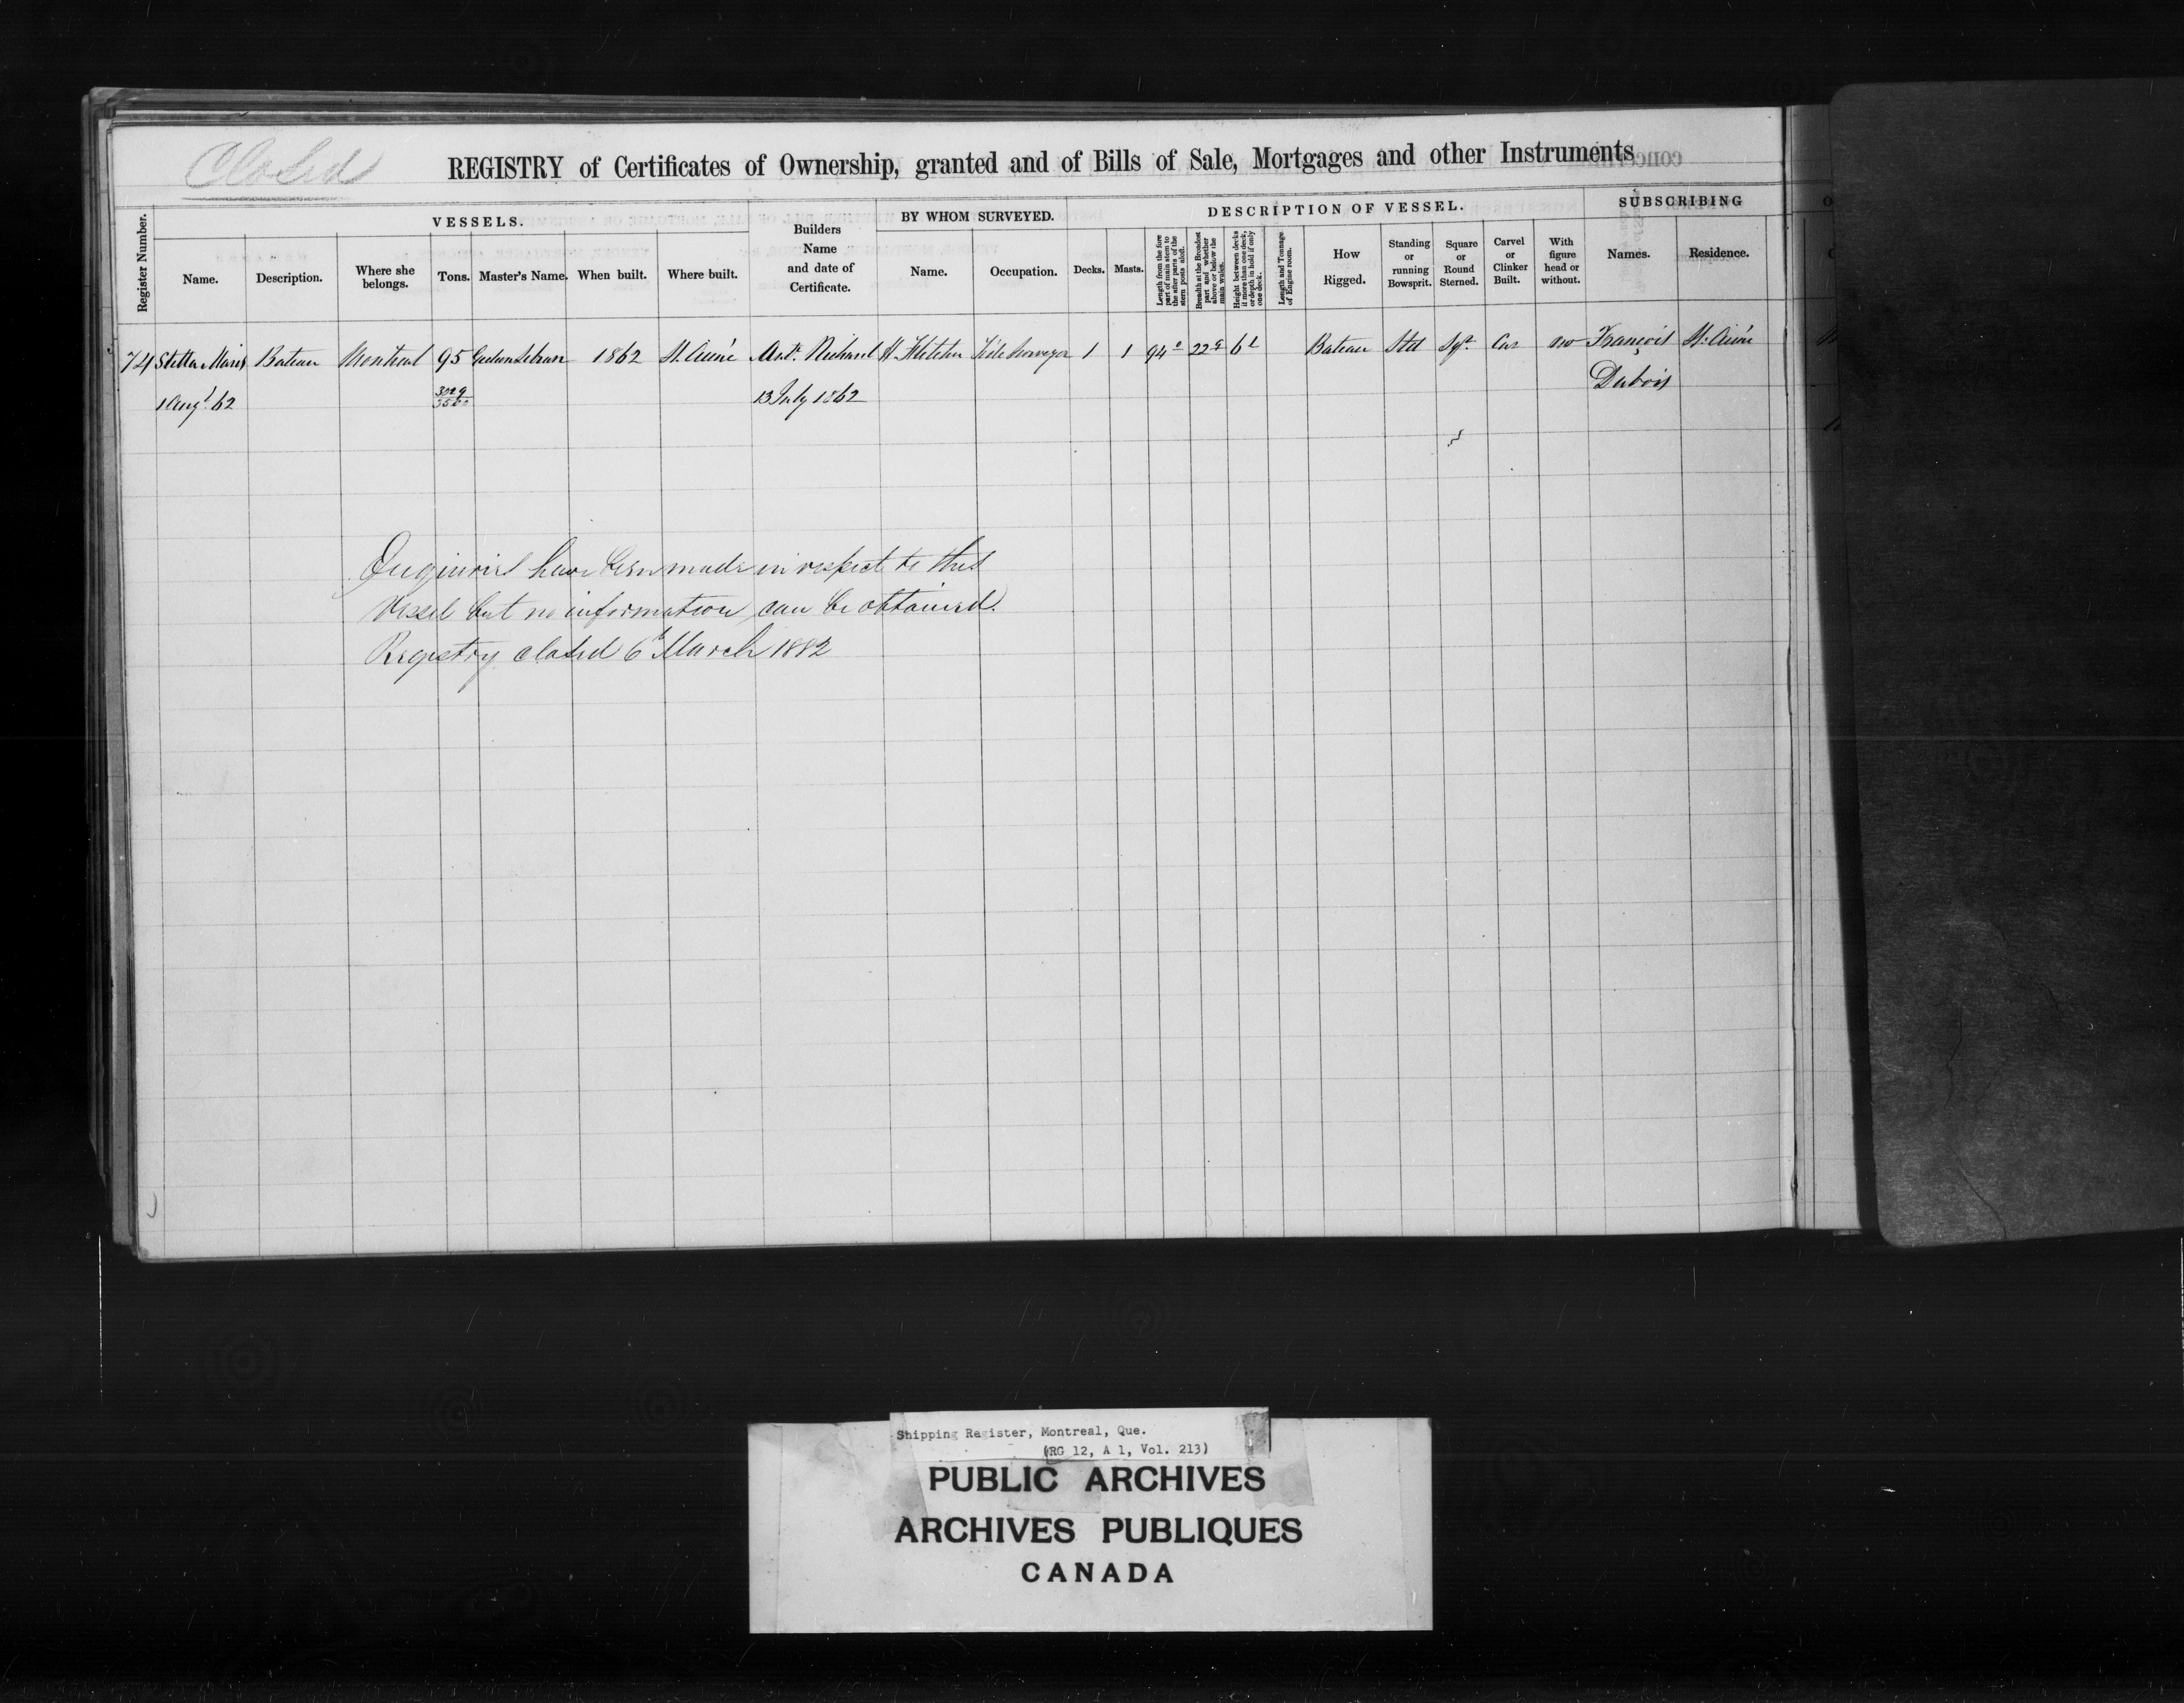 Closed
REGISTRY of Certificates of Ownership, granted and of Bills of Sale, Mortgages and other Instruments
Register Number.
VESSELS.
Name.
Description.
Where she belongs.
Tons.
Master's Name.
When built.
Where built.
Builders
Name
and date of
Certificate.
BY WHOM SURVEYED.
Name.
Occupation.
DESCRIPTION OF VESSEL.
Decks.
Masts.
Length from the fore
part of main stem to
the after parts of the
stern posts aloft.
Breadth at the Broadest
part and whether
above or below the
main wales.
Height between decks
if more than one deck,
or depth in hold if only
one deck.
Length and Tonnage
of Engine room.
How
Rigged.
Standing
or
running
Bowsprit.
Square
or
Round
Sterned.
Carvel
or
Clinker
Built.
With
figure
head or
without.
SUBSCRIBING
Names.
Residence.
74 Stella Maris Bateau Montreal 95 1862 St. Aimé H Fletcher Tide Surveyor 1 1 94 22 6 Bateau Std Sqr Car no François St. Aimé
1 Augt. 62 13 July 1862 Dubois
Enquiries have been made in respect to this
Vessel but no information can be obtained.
Registry closed 6th March 1882
Shipping Register, Montreal, Que.
(RG 12, A 1, Vol. 213)
PUBLIC ARCHIVES
ARCHIVES PUBLIQUES
CANADA